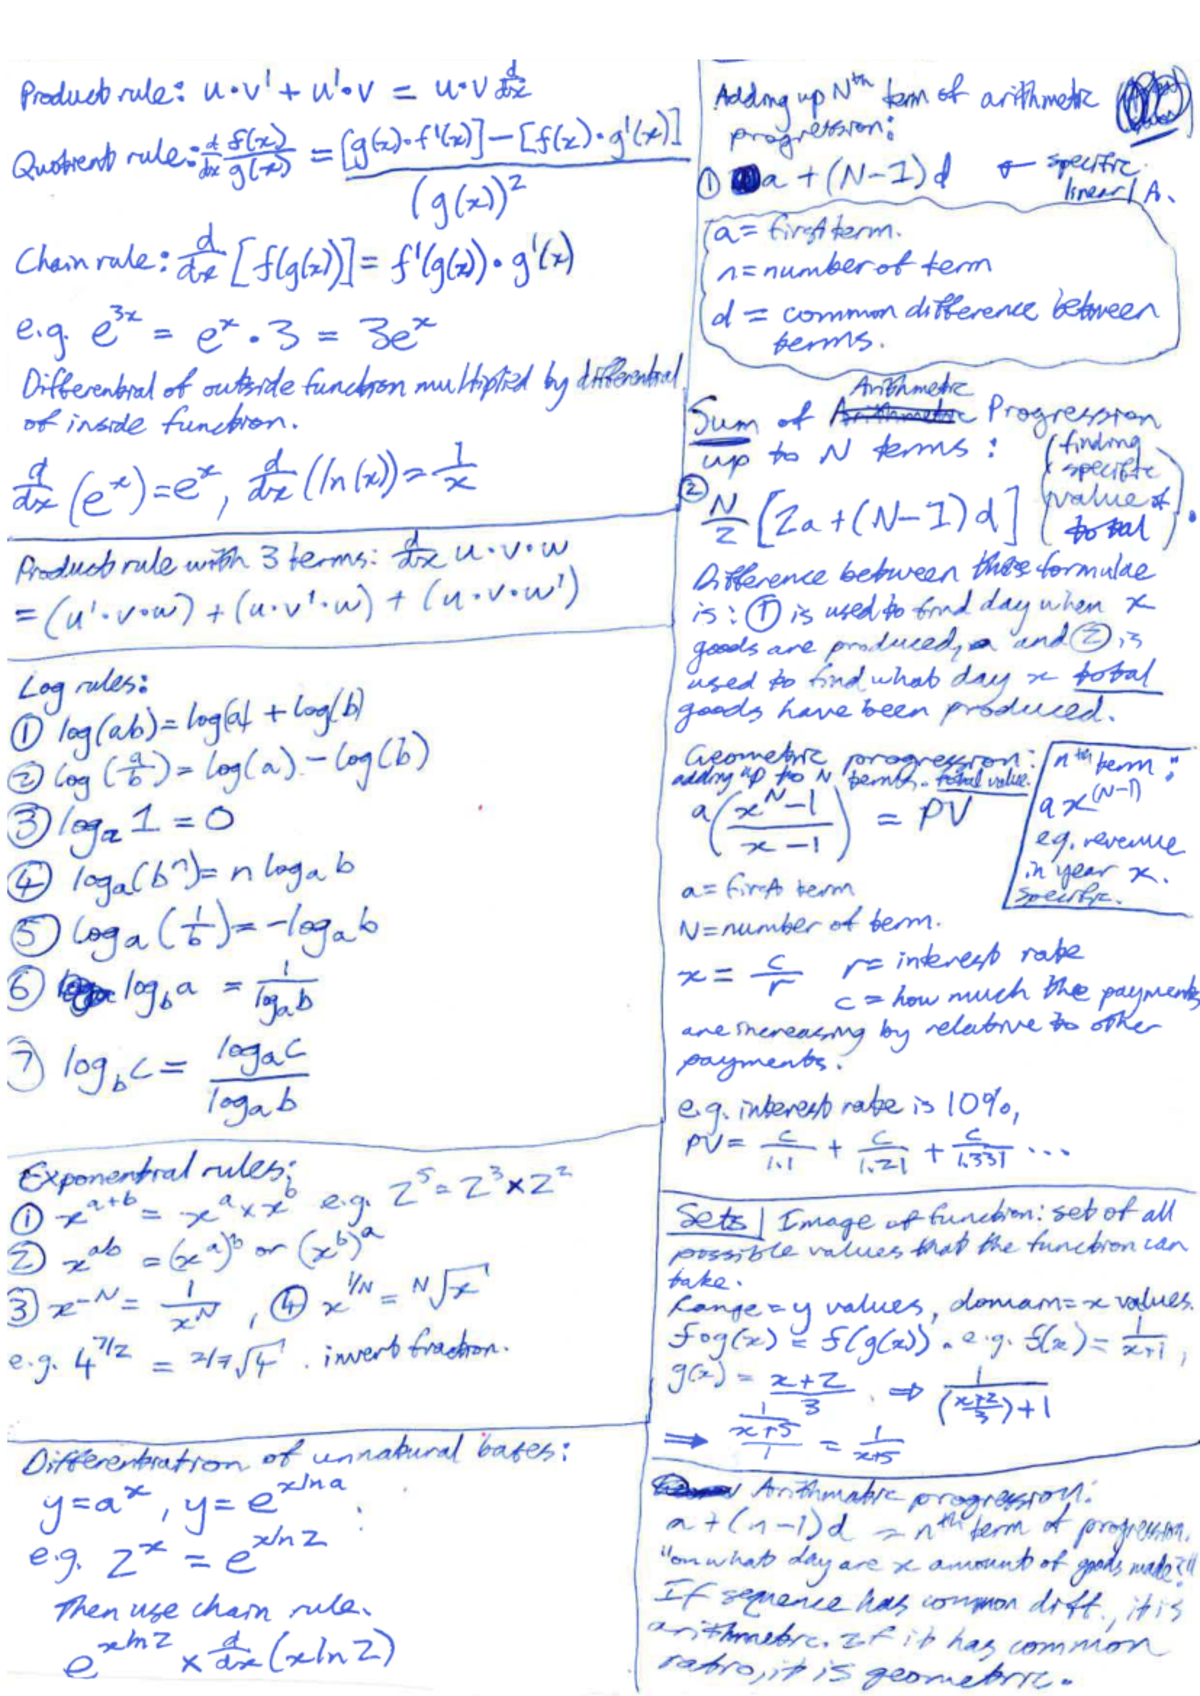 Product rule: u·v' + u'·v = u·v d/dx
Quotient rule: d/dx f(x)/g(x) = [g(x)·f'(x)] - [f(x)·g'(x)] / (g(x))²
Chain rule: d/dx [f(g(x))] = f'(g(x))·g'(x)
e.g. e^3x = e^x · 3 = 3e^x
Differential of outside function multiplied by differential
of inside function.
d/dx (e^x) = e^x, d/dx (ln(x)) = 1/x
Product rule with 3 terms: d/dx u·v·w
= (u'·v·w) + (u·v'·w) + (u·v·w')
Log rules:
① log(ab) = log(a) + log(b)
② log (a/b) = log(a) - log(b)
③ log_a 1 = 0
④ log_a(b^n) = n log_a b
⑤ log_a (1/b) = -log_a b
⑥ log_b a = 1/log_a b
⑦ log_b c = log_a c / log_a b
Exponential rules:
① x^(a+b) = x^a × x^b e.g. 2^5 = 2^3 × 2^2
② x^ab = (x^a)^b or (x^b)^a
③ x^-N = 1/x^N , ④ x^1/N = N√x
e.g. 4^7/2 = 2/7√4 . invert fraction.
Differentiation of unnatural bases:
y = a^x, y = e^(xlna)
e.g. 2^x = e^(xln2)
Then use chain rule.
e^(xln2) × d/dx (xln2)
Adding up Nth term of arithmetic
progression:
① a + (N-1)d ← specific
linear / A.
a = first term.
n = number of term
d = common difference between
terms.
Arithmetic
Sum of Arithmetic Progression
up to N terms: (finding
specific
value of
total)
② N/2 [2a + (N-1)d]
Difference between these formulae
is: ① is used to find day when x
goods are produced, and ② is
used to find what day x total
goods have been produced.
Geometric progression:
adding up to N terms. total value.
a((x^N - 1)/(x - 1)) = PV
nth term:
a x^(N-1)
e.g. revenue
in year x.
specific.
a = first term
N = number of term.
x = c/r r = interest rate
c = how much the payments
are increasing by relative to other
payments.
e.g. interest rate is 10%,
PV = c/1.1 + c/1.21 + c/1.331 ...
Sets | Image of function: set of all
possible values that the function can
take.
Range = y values, domain = x values.
fog(x) = f(g(x)). e.g. f(x) = 1/(x+1),
g(x) = (x+2)/3 . ⇒ 1/(((x+2)/3)+1)
⇒ (1/(x+5))/1 = 1/(x+5)
Arithmatic progression:
a + (n-1)d = nth term of progression.
"on what day are x amount of goods made?"
If sequence has common diff., it is
arithmetic. If it has common
ratio, it is geometric.